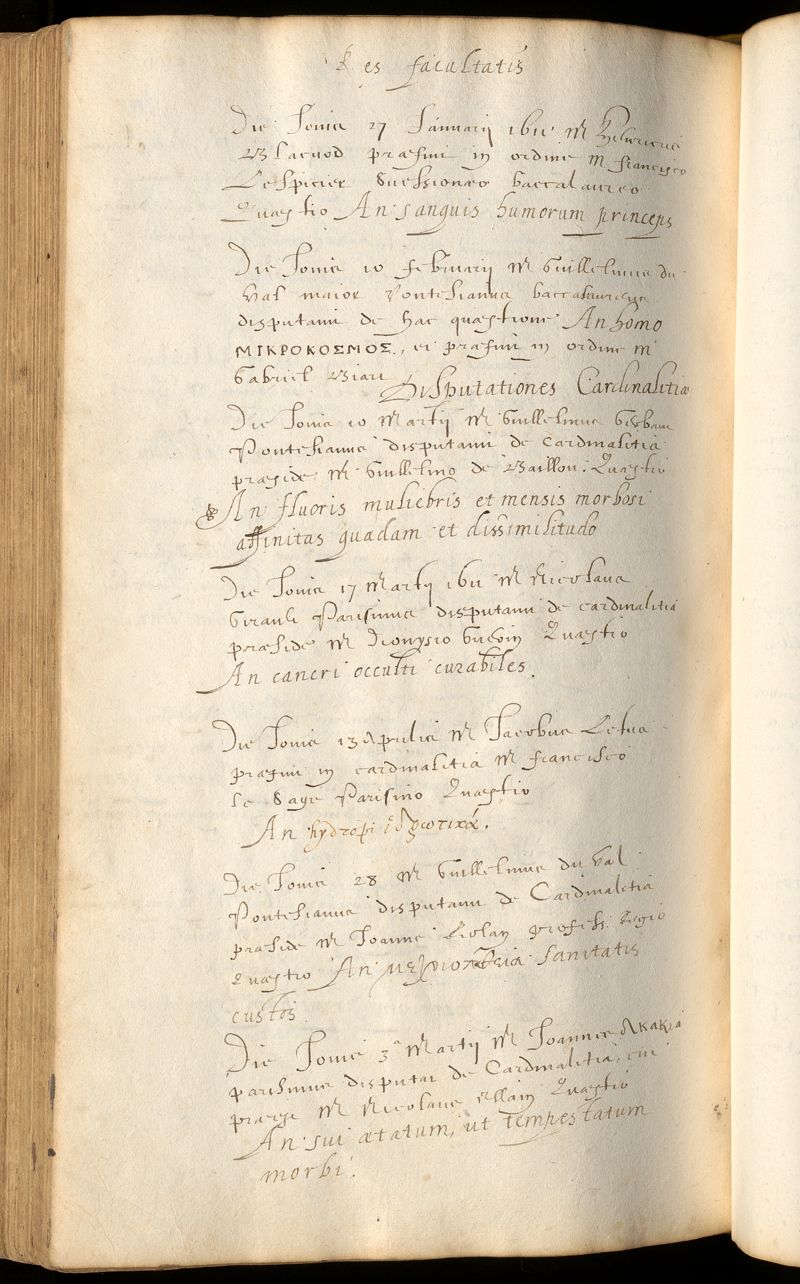 Res facultatis
Die Jovis 27 Januarij 1611 M Henricus
Blacuod præfuit in ordine M francisco
Lespicier Suessionæo baccalaureo
Quæstio An sanguis humorum princeps
Die Jovis 10 februarij M Guillelmus du
Val maior Pontesianus baccalaureus
disputavit de hac quæstione An homo
ΜΙΚΡΟΚΟΣΜΟΣ, ei præfuit in ordine M
Gabriel Biart Disputationes Cardinalitiæ
Die Jovis 10 Martij M Guillelmus
Pontesianus disputavit de cardinalitia
præside M Guillelmo de Baillou. Quæstio
An fluoris muliebris et mensis morbosi
affinitas quædam et dissimilitudo
Die Jovis 17 Martij 1611 M Nicolaus
Girault Parisinus disputavit de cardinalitia
præside M Dionysio Quæstio
An cancri occulti curabiles.
Die Jovis 13 Aprilis M Jacobus Letus
præfuit in cardinalitia M francisco
le Sage Parisino Quæstio
An hydropi ἱδρωτικά.
Die Jovis 28 M Guillelmus du Val
Pontesianus disputavit de Cardinalitia
præside M Joanne Riolan profess. Regio
Quæstio An sanitatis
custos.
Die Jovis 3ª Martij M Joannes Akakia
parisinus disputat de Cardinalitia, cui
præest M Nicolaus Ellain Quæstio
An sui ætatum, ut tempestatum
morbi.